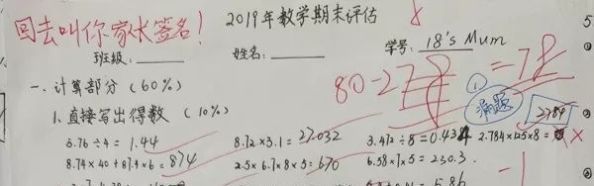 回去叫你家长签名!
2019年数学期末评估
班级: 姓名: 学号: 18's Mum
一、计算部分 (60%)
80-2
=78
①
漏题
1. 直接写出得数 (10%)
2784
5.76÷4= 1.44 8.72×3.1= 27.032 3.472÷8=0.434 2.784×125×8=
8.74×40+87.4×6= 874 2.5×6.7×8×5= 670 6.58×7×5=230.3
-1
5.86
5